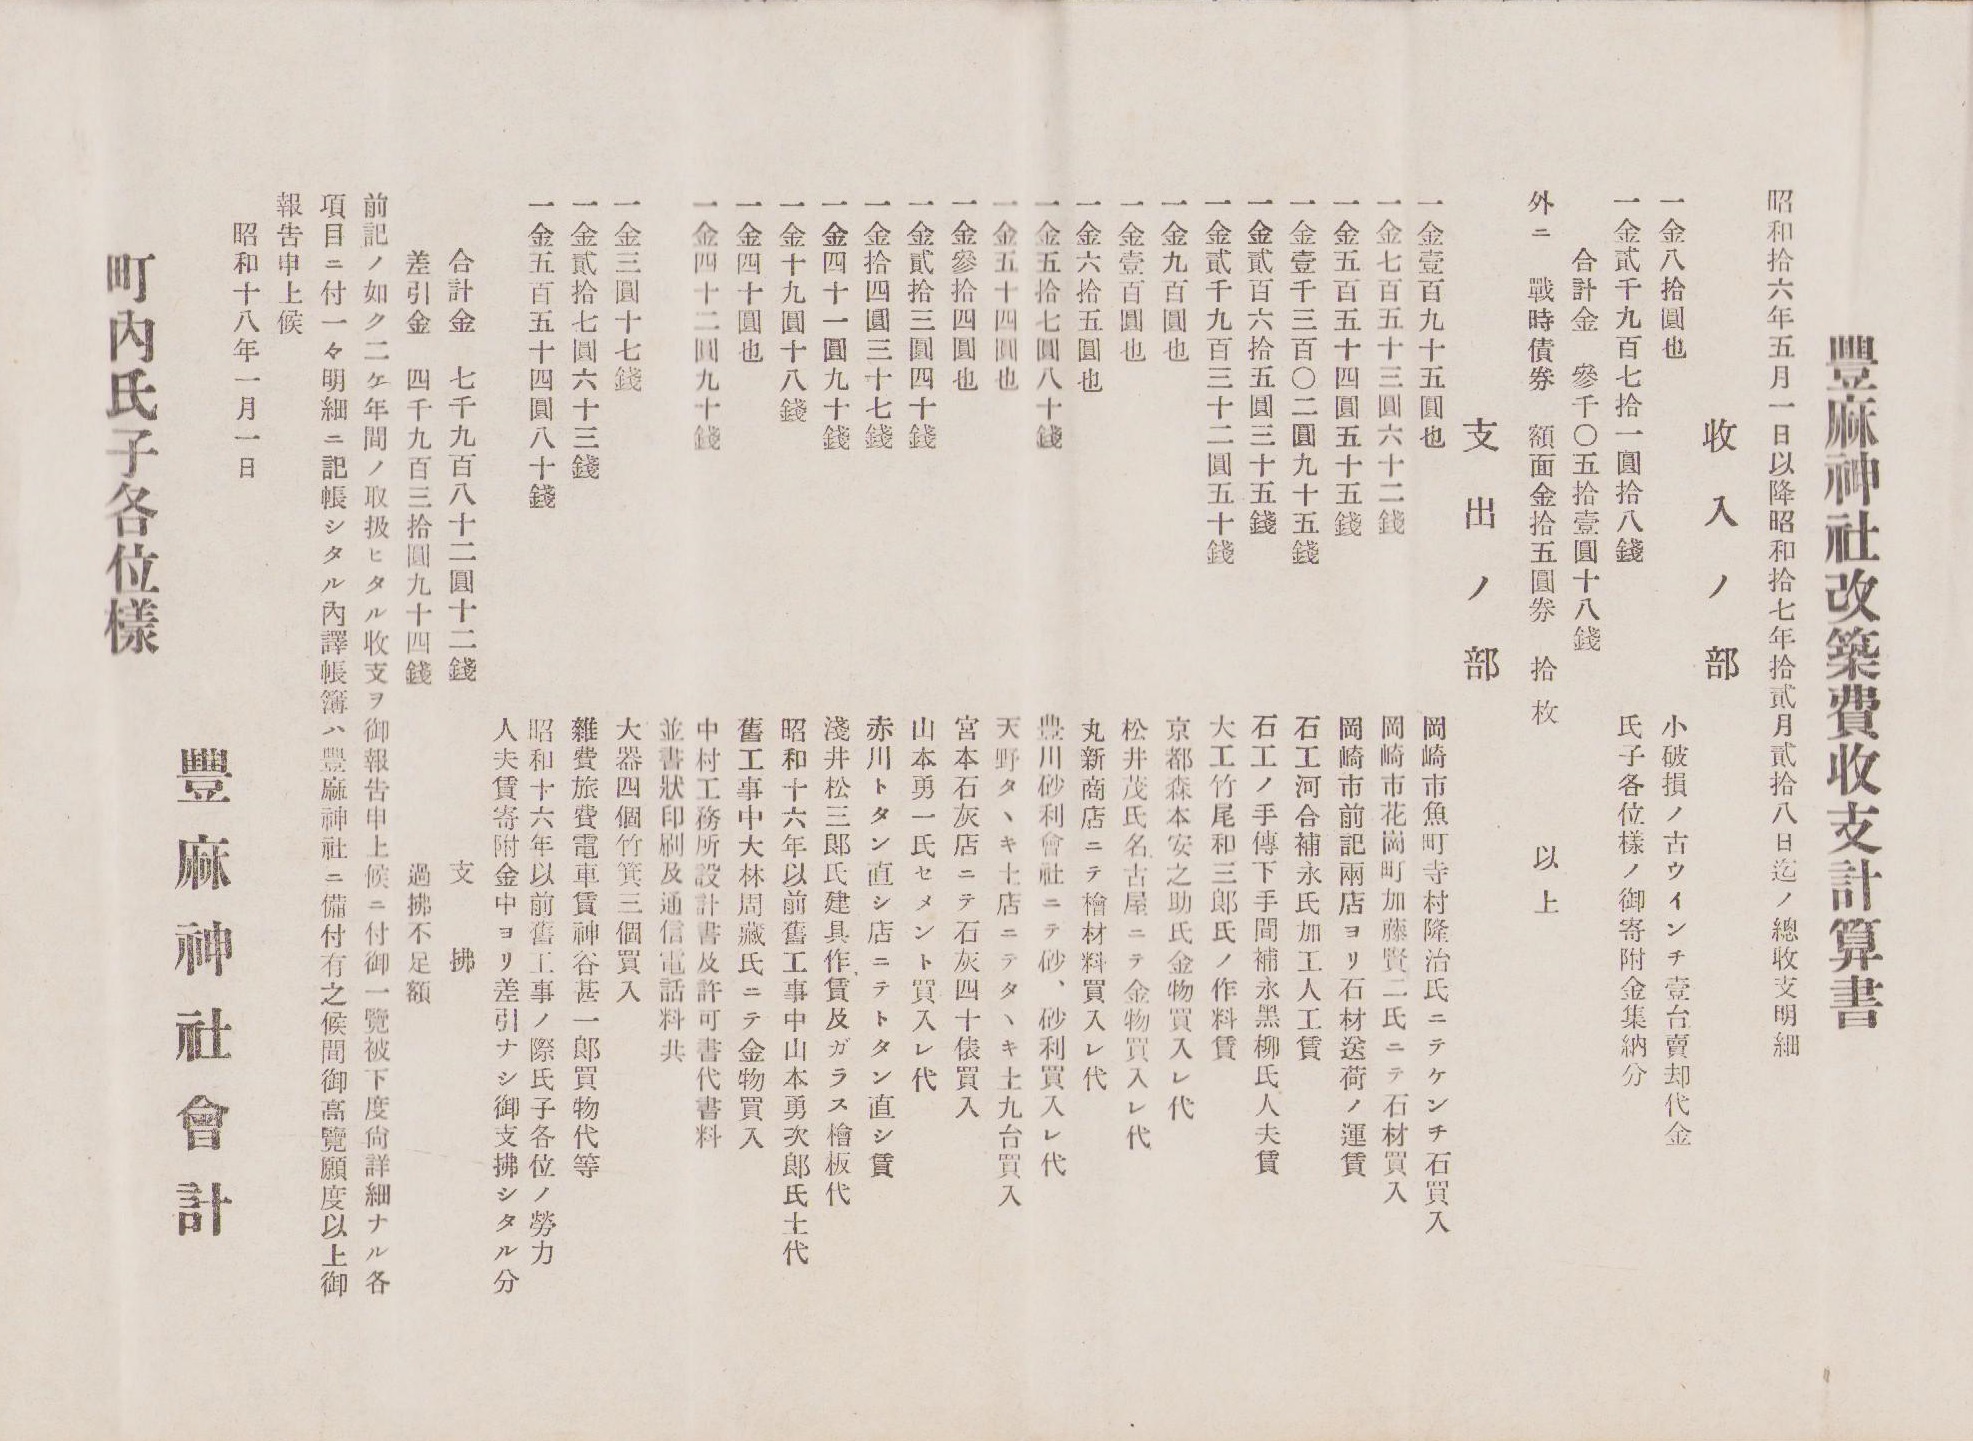 豐麻神社改築費收支計算書
昭和拾六年五月一日以降昭和拾七年拾貳月貳拾八日迄ノ總收支明細
收入ノ部
一金八拾圓也 小破損ノ古ウインチ壹台賣却代金
一金貳千九百七拾一圓拾八錢 氏子各位樣ノ御寄附金集納分
合計金 參千〇五拾壹圓十八錢
外ニ 戰時債券 額面金拾五圓券 拾枚 以上
支出ノ部
一金壹百九十五圓也 岡崎市魚町寺村隆治氏ニテケンチ石買入
一金七百五十三圓六十二錢 岡崎市花崗町加藤賢二氏ニテ石材買入
一金五百五十四圓五十五錢 岡崎市前記兩店ヨリ石材送荷ノ運賃
一金壹千三百〇二圓九十五錢 石工河合補永氏加工人工賃
一金貳百六拾五圓三十五錢 石工ノ手傳下手間補永黑柳氏人夫賃
一金貳千九百三十二圓五十錢 大工竹尾和三郎氏ノ作料賃
一金九百圓也 京都森本安之助氏金物買入レ代
一金壹百圓也 松井茂氏名古屋ニテ金物買入レ代
一金六拾五圓也 丸新商店ニテ檜材料買入レ代
一金五拾七圓八十錢 豊川砂利會社ニテ砂、砂利買入レ代
一金五十四圓也 天野タヽキ土店ニテタヽキ土九台買入
一金參拾四圓也 宮本石灰店ニテ石灰四十俵買入
一金貳拾三圓四十錢 山本勇一氏セメント買入レ代
一金拾四圓三十七錢 赤川トタン直シ店ニテトタン直シ賃
一金四十一圓九十錢 淺井松三郎氏建具作賃及ガラス檜板代
一金十九圓十八錢 昭和十六年以前舊工事中山本勇次郎氏土代
一金四十圓也 舊工事中大林周藏氏ニテ金物買入
一金四十二圓九十錢 中村工務所設計書及許可書代書料
並書狀印刷及通信電話料共
一金三圓十七錢 大器四個竹箕三個買入
一金貳拾七圓六十三錢 雜費旅費電車賃神谷甚一郎買物代等
一金五百五十四圓八十錢 昭和十六年以前舊工事ノ際氏子各位ノ勞力
人夫賃寄附金中ヨリ差引ナシ御支拂シタル分
合計金 七千九百八十二圓十二錢 支拂
差引金 四千九百三拾圓九十四錢 過拂不足額
前記ノ如ク二ケ年間ノ取扱ヒタル收支ヲ御報告申上候ニ付御一覽被下度尙詳細ナル各
項目ニ付一々明細ニ記帳シタル內譯帳簿ハ豐麻神社ニ備付有之候間御高覽願度以上御
報告申上候
昭和十八年一月一日
豐麻神社會計
町內氏子各位樣